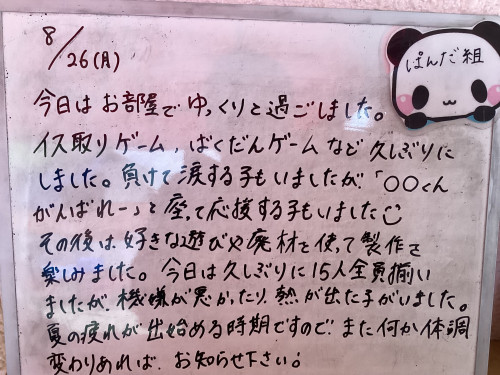 8/26(月)
ぱんだ組
今日は お部屋で ゆっくりと過ごしました。
イス取りゲーム、ばくだんゲーム など 久しぶりに
しました。負けて涙する子もいましたが「〇〇くん
がんばれー」と 座って応援する子もいました
その後は好きな遊びや廃材を使って製作を
楽しみました。今日は久しぶりに15人全員揃い
ましたが 機嫌が悪かったり、熱が出た子がいました。
夏の疲れが出始める時期ですので、また何か体調
変わりあれば、お知らせ下さい!